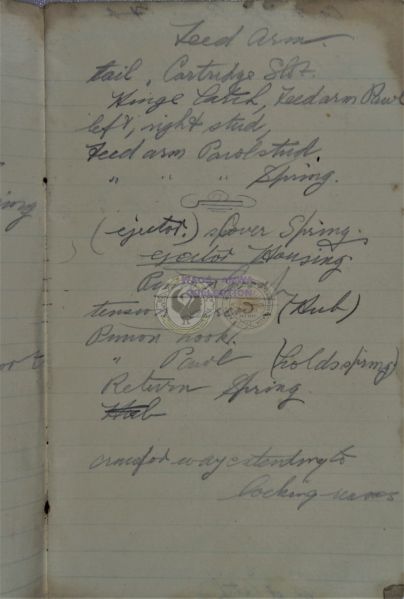 Feed Arm.
tail, Cartridge Slot.
Hinge Catch, Feed arm Pawl
left, right stud,
Feed arm Pawl stud.
" " " Spring.
(ejector.) Cover Spring.
ejector Housing
tension (Hub)
Pinion hook.
" Pawl (holds spring)
Return Spring.
Hub
way extending to
locking